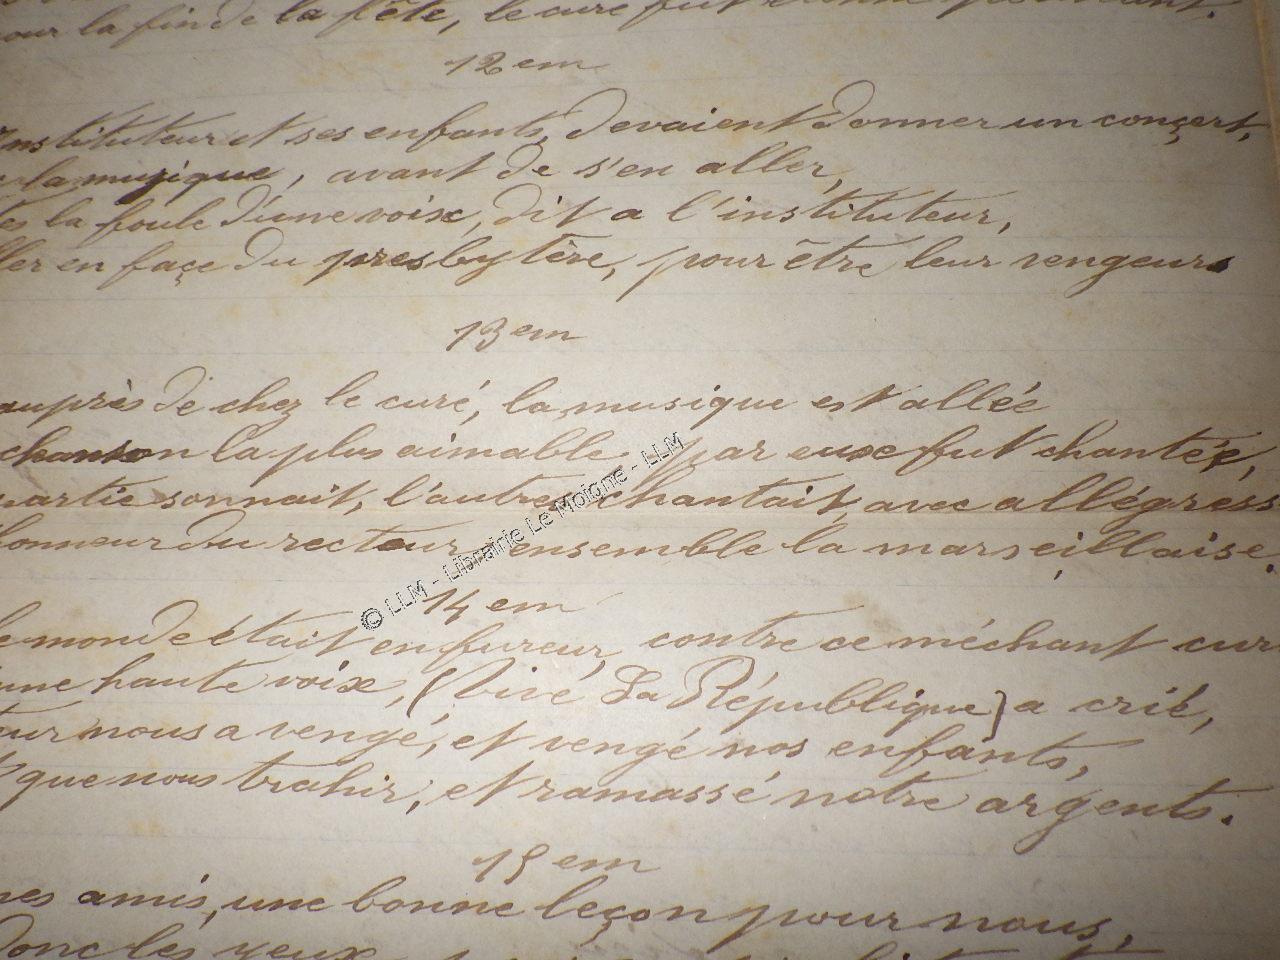 pour la fin de la fête, le curé fut
12 em
instituteur et ses enfants, devaient donner un conçert,
la musique, avant de s'en aller,
la foule d'une voix, dit a l'instituteur,
en façe du presbytère, pour être leur vengeurs
13 em
auprès de chez le curé, la musique est allée
chanson la plus aimable par eux fut chantée,
partie sonnait, l'autre chantait avec allégress
honneur du recteur ensemble la marseillaise.
© LLM - Librairie Le Moigne - LLM
14 em
le monde était en fureur, contre ce méchant cur
une haute voix, (Vive La République) a crié,
nous a vengé, et vengé nos enfants,
que nous trahir, et ramassé notre argents.
15 em
mes amis, une bonne leçon pour nous,
donc les yeux